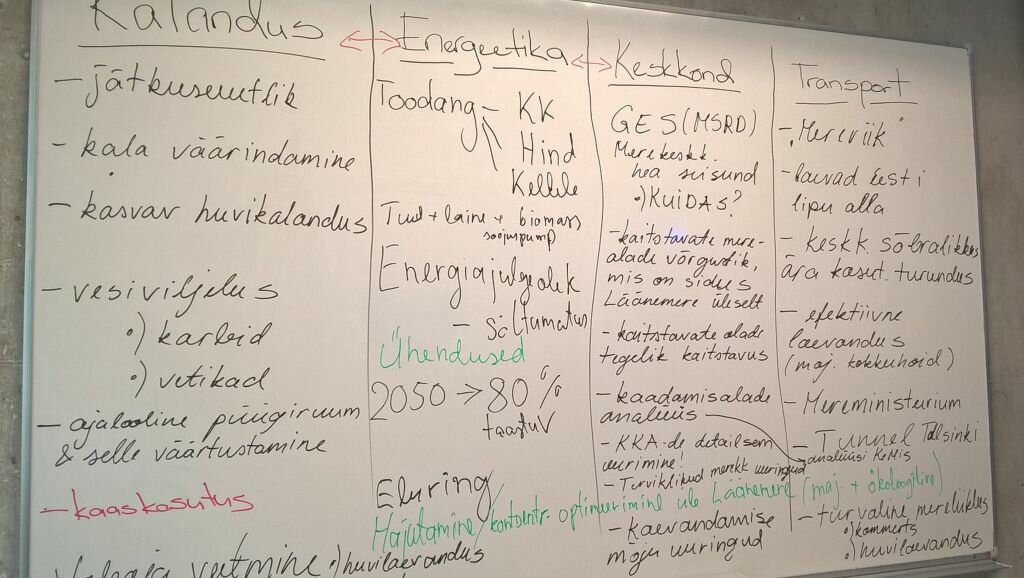 Kalandus
- jätkusuutlik
- kala väärindamine
- kasvav huvikalandus
- vesiviljelus
•) karbid
•) vetikad
- ajalooline püügiruum
& selle väärtustamine
- kaaskasutus
veetmine •) huvilaevandus
Energeetika
Toodang - KK
Hind
Kellele
Tuul + laine + biomass
soojuspump
Energiajulgeolek
- sõltumatus
Ühendused
2050 → 80%
taastuv
Eluring
Majutamine/kontsentr. optimeerimine üle Läänemere (maj + ökoloogiline)
Keskkond
GES (MSRD)
Merekeskk.
hea seisund
•) KUIDAS?
- kaitstavate mere-
alade võrgustik,
mis on sidus
Läänemere üleselt
- kaitstavate alade
tegelik kaitstavus
- kaadamisalade
analüüs
- KKA-de detailsem
uurimine!
- Terviklikud merekk uuringud
- kaevandamise
moju uuringud
Transport
- "Mereriik"
- laevad Eesti
lipu alla
- keskk. sõbralikkus
ära kasut. turundus
- efektiivne
laevandus
(maj. kokkuhoid)
- Mereministeerium
- Tunnel Tallsinki
analüüsi KeMis
- turvaline mereliiklus
•) kommerts
•) huvilaevandus